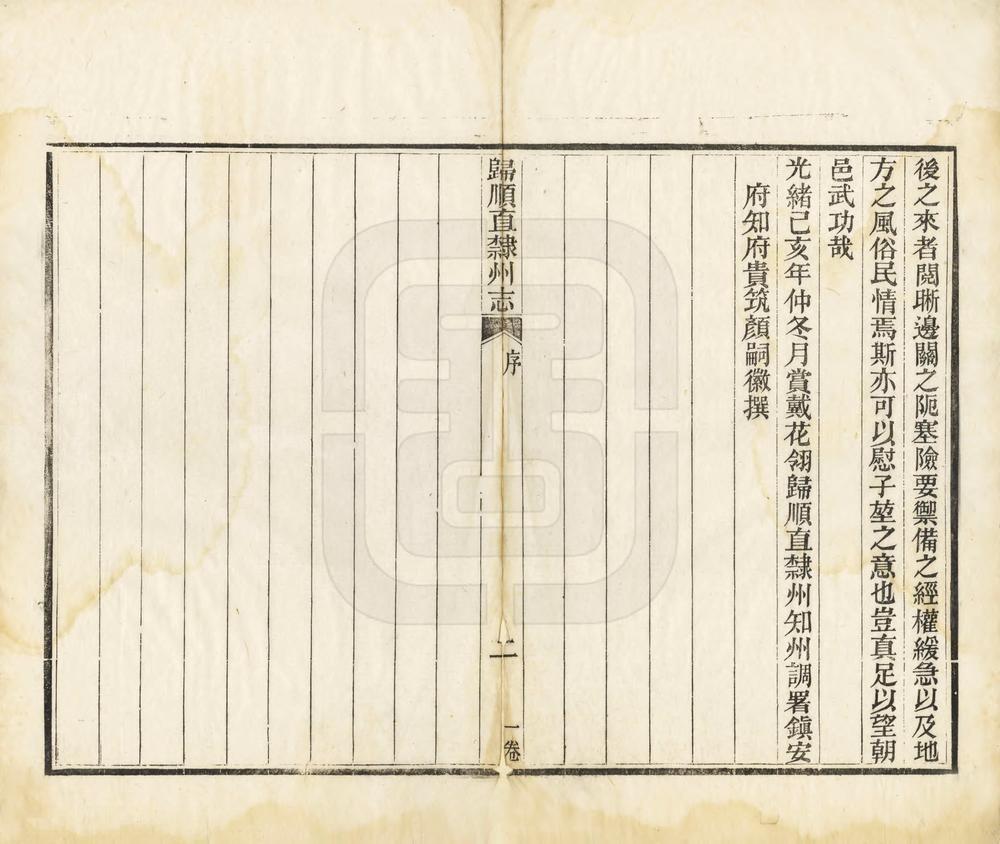 後之來者閱晰邊關之阨塞險要禦備之經權緩急以及地
方之風俗民情焉斯亦可以慰子堃之意也豈真足以望朝
邑武功哉
光緒己亥年仲冬月賞戴花翎歸順直隸州知州調署鎮安
府知府貴筑顏嗣徽撰
歸順直隸州志
序
二
一卷